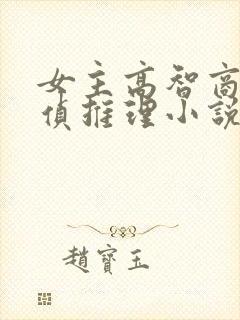 女主高智商
偵推理小說
趙寶玉